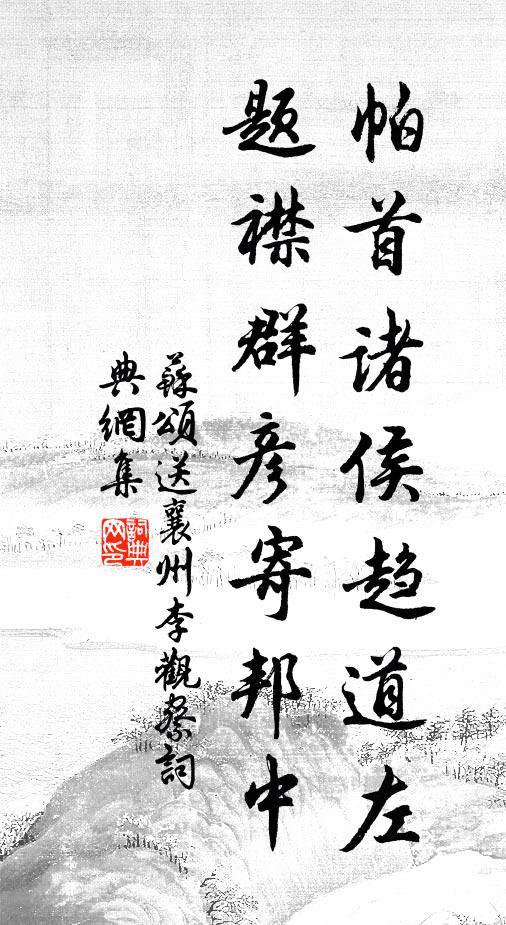 帕首诸侯趋道左
题襟群彦寄邦中
蘇頌送襄州李觀察詞
典網集
詞典网印